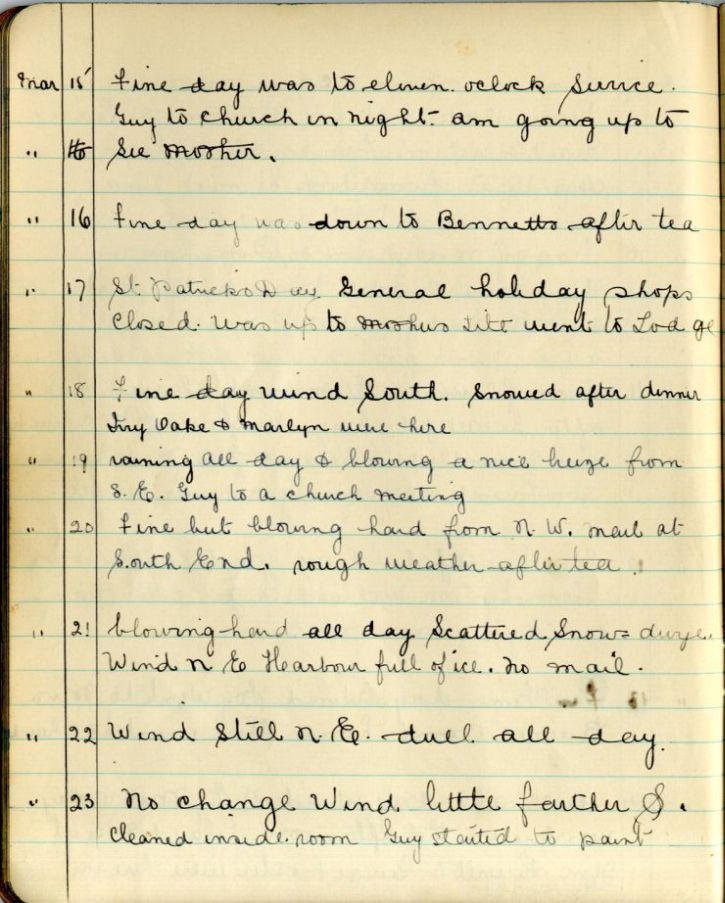 Mar 15 Fine day was to eleven. oclock Service.
Guy to church in night. am going up to
" 16 See Mother.
" 16 Fine day was down to Bennetts after tea
" 17 St. Patricks Day General holiday shops
Closed. Was up to Mothers went to Lodge
" 18 Fine day wind South. Snowed after dinner
Oake & Marlyn were here
" 19 raining all day & blowing a nice breeze from
S. E. Guy to a church meeting
" 20 Fine but blowing hard from N. W. mail at
South End. rough weather after tea.
" 21 blowing hard all day Scattered Snow=
Wind N E Harbour full of ice. no mail.
" 22 Wind Still N. E. duel all day.
" 23 No change Wind little farther S.
cleaned inside room Guy started to paint